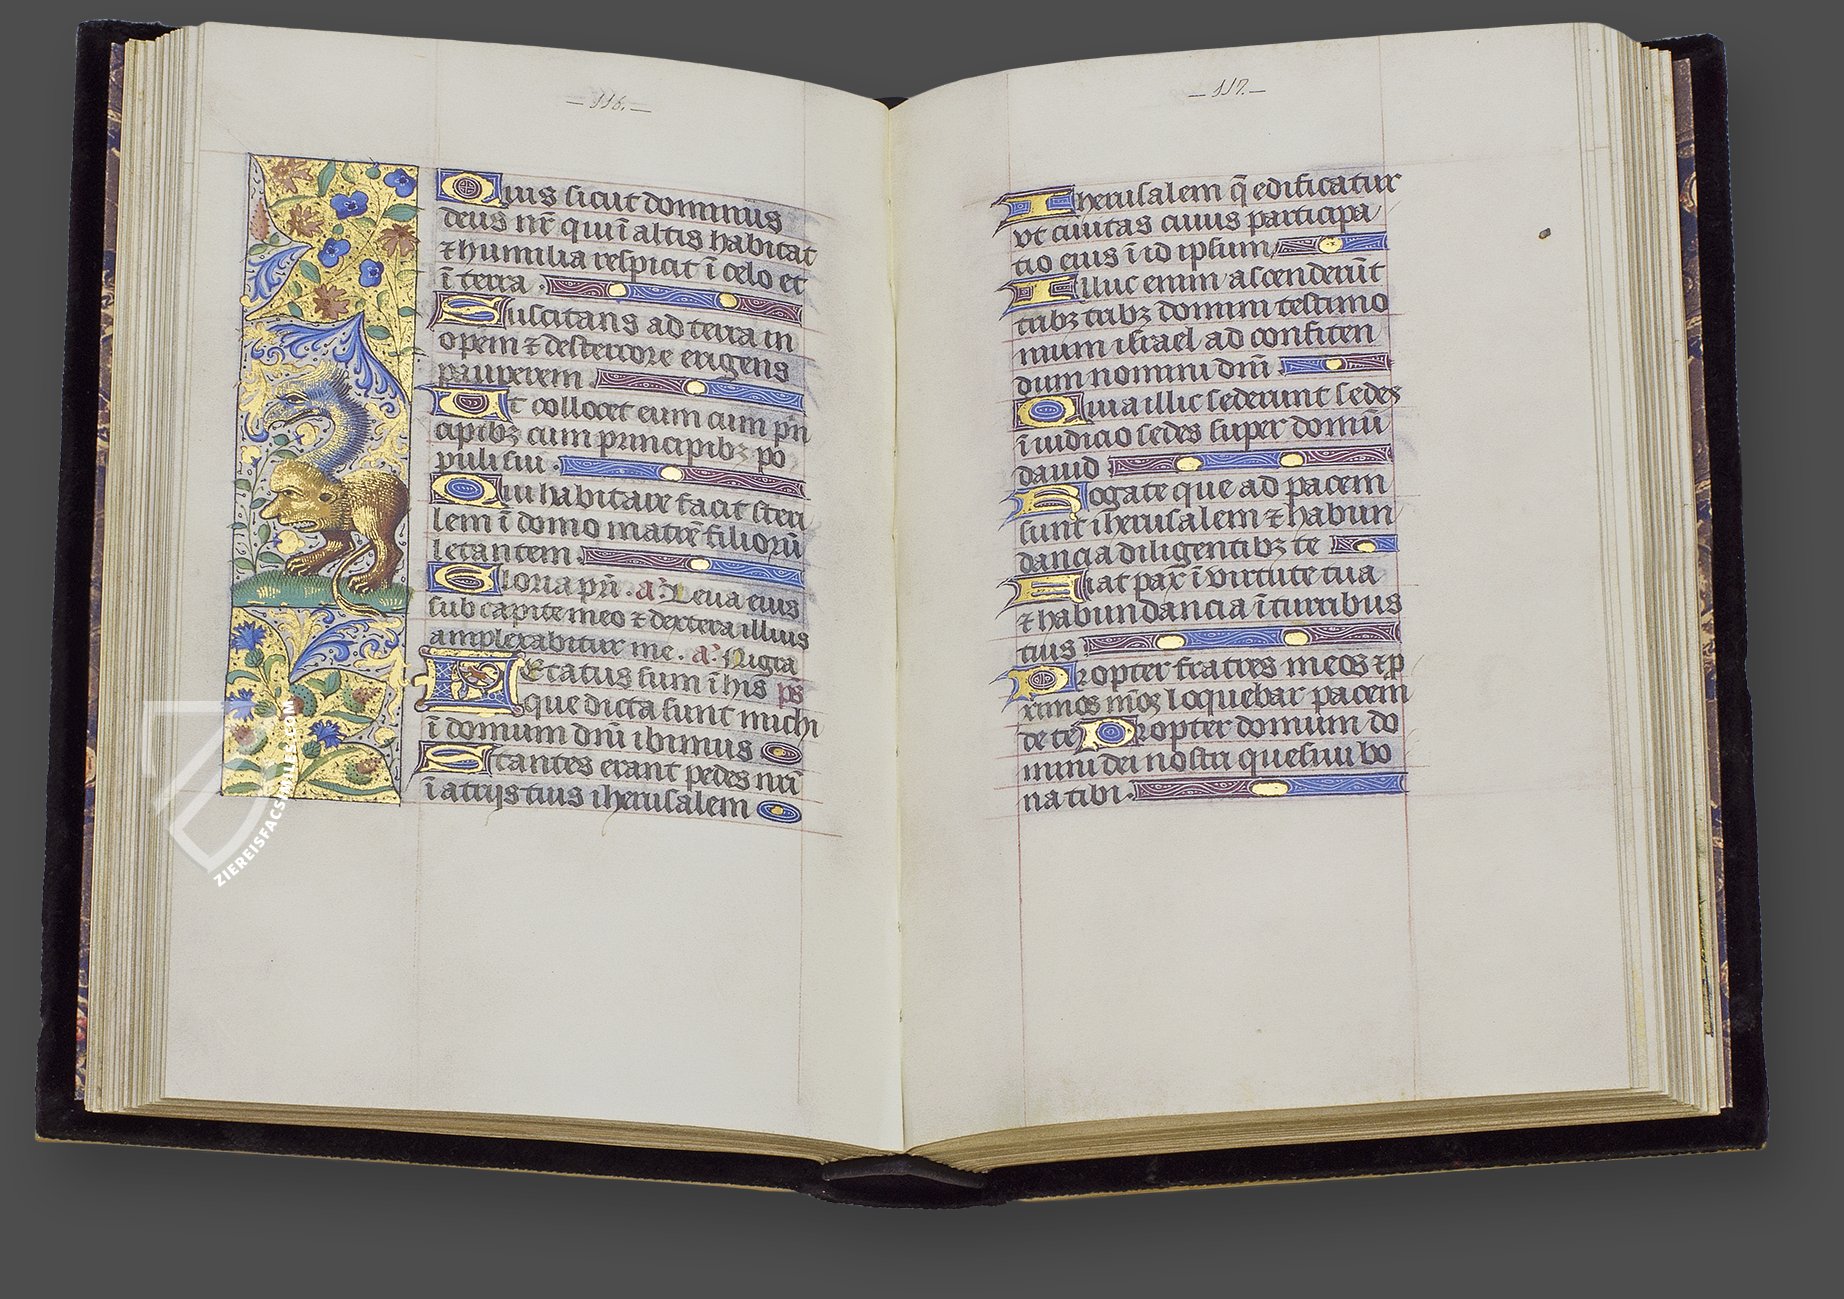 — 116. —
Quis sicut dominus
deus nr̄ qui ī altis habitat
⁊ humilia respicit ī celo et
ī terra .
Suscitans ad terra in
opem ⁊ de stercore erigens
pauperem .
Ut collocet eum cum prī
cipibꝫ cum principibꝫ po
puli sui .
Qui habitare facit steri
lem ī domo matrē filiorū
letantem .
Gloria pr̄i . a᷒. Leua eius
sub capite meo ⁊ dextera illius
amplexabitur me . a᷒. Nigra
Letatus sum ī his ps
que dicta sunt michi
ī domum dn̄i ibimus
Stantes erant pedes nr̄i
ī atrijs tuis iherusalem
— 117. —
Iherusalem q̄ edificatur
vt ciuitas cuius participa
tio eius ī id ipsum
Illuc enim ascenderūt
tribꝫ tribꝫ domini testimo
nium israel ad confiten
dum nomini dn̄i .
Quia illic sederunt sedes
ī iudicio sedes super domū
dauid
Rogate que ad pacem
sunt iherusalem ⁊ habun
dancia diligentibꝫ te
Fiat pax ī virtute tua
⁊ habundancia ī turribus
tuis
Propter fratres meos ⁊ p̱
ximos meos loquebar pacem
de te Propter domum do
mini dei nostri quesiui bo
na tibi .
ZIEREISFACSIMILES.COM